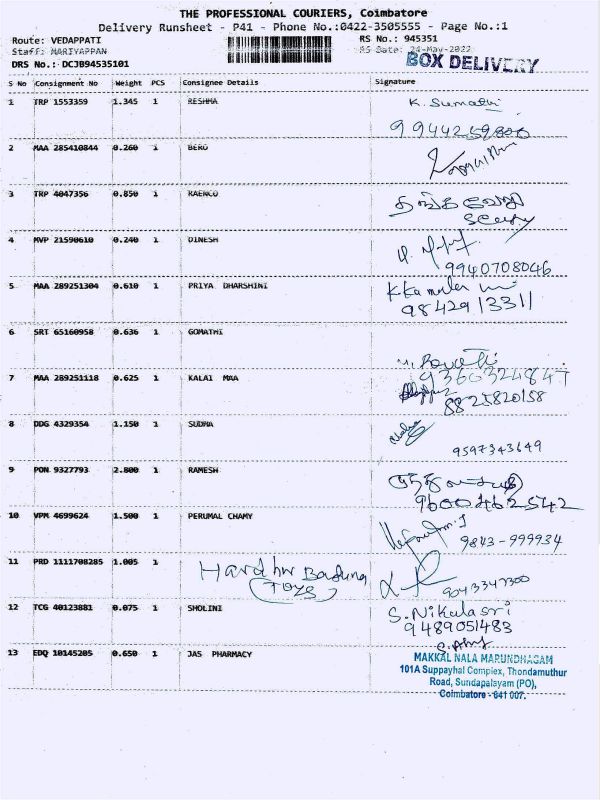 THE PROFESSIONAL COURIERS, Coimbatore
Delivery Runsheet - P41 - Phone No.:0422-3505555 - Page No.:1
Route: VEDAPPATI RS No.: 945351
Staff: MARIYAPPAN RS Date: 24-May-2022
DRS No.: DCJB94535101 BOX DELIVERY
S No Consignment No Weight PCS Consignee Details Signature
1 TRP 1553359 1.345 1 RESHMA K. Sumathi
9944259800
2 MAA 285410844 0.260 1 BERO
3 TRP 4047356 0.850 1 RAENCO
4 MVP 21590610 0.240 1 DINESH
9940708046
5 MAA 289251304 0.610 1 PRIYA DHARSHINI
9842913311
6 SRT 65160958 0.636 1 GOMATHI
M. Revathi
9360324847
7 MAA 289251118 0.625 1 KALAI MAA
8825820158
8 DDG 4329354 1.150 1 SUDHA
9597343649
9 PON 9327793 2.800 1 RAMESH
9600462542
10 VPM 4699624 1.500 1 PERUMAL CHAMY
9843-999934
11 PRD 1111708285 1.005 1
(Toys) 9043347300
12 TCG 40123881 0.075 1 SHOLINI S. Nikalasri
9489051483
13 EDQ 10145205 0.650 1 JAS PHARMACY
MAKKAL NALA MARUNDHAGAM
101A Suppayhal Complex, Thondamuthur
Road, Sundapalayam (PO),
Coimbatore - 641 007.